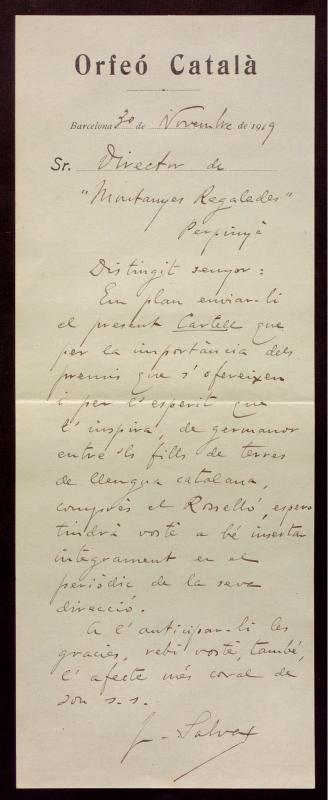 Orfeó Català
Barcelona 30 de Novembre de 1919
Sr. Director de
"Montanyes Regalades"
Perpinyà
Distingit senyor:
Em plau enviar-li
el present Cartell que
per la importància dels
premis que s'ofereixen
i per l'esperit que
l'inspira, de germanor
entre 'ls fills de terres
de llengua catalana,
comprès el Rosselló, espero
tindrà vostè a bé insertar
integrament en el
periòdic de la seva
direcció.
A l'anticipar-li les
gracies, rebi vostè, també,
l'afecte més coral de
son s.s.
J. Salvat